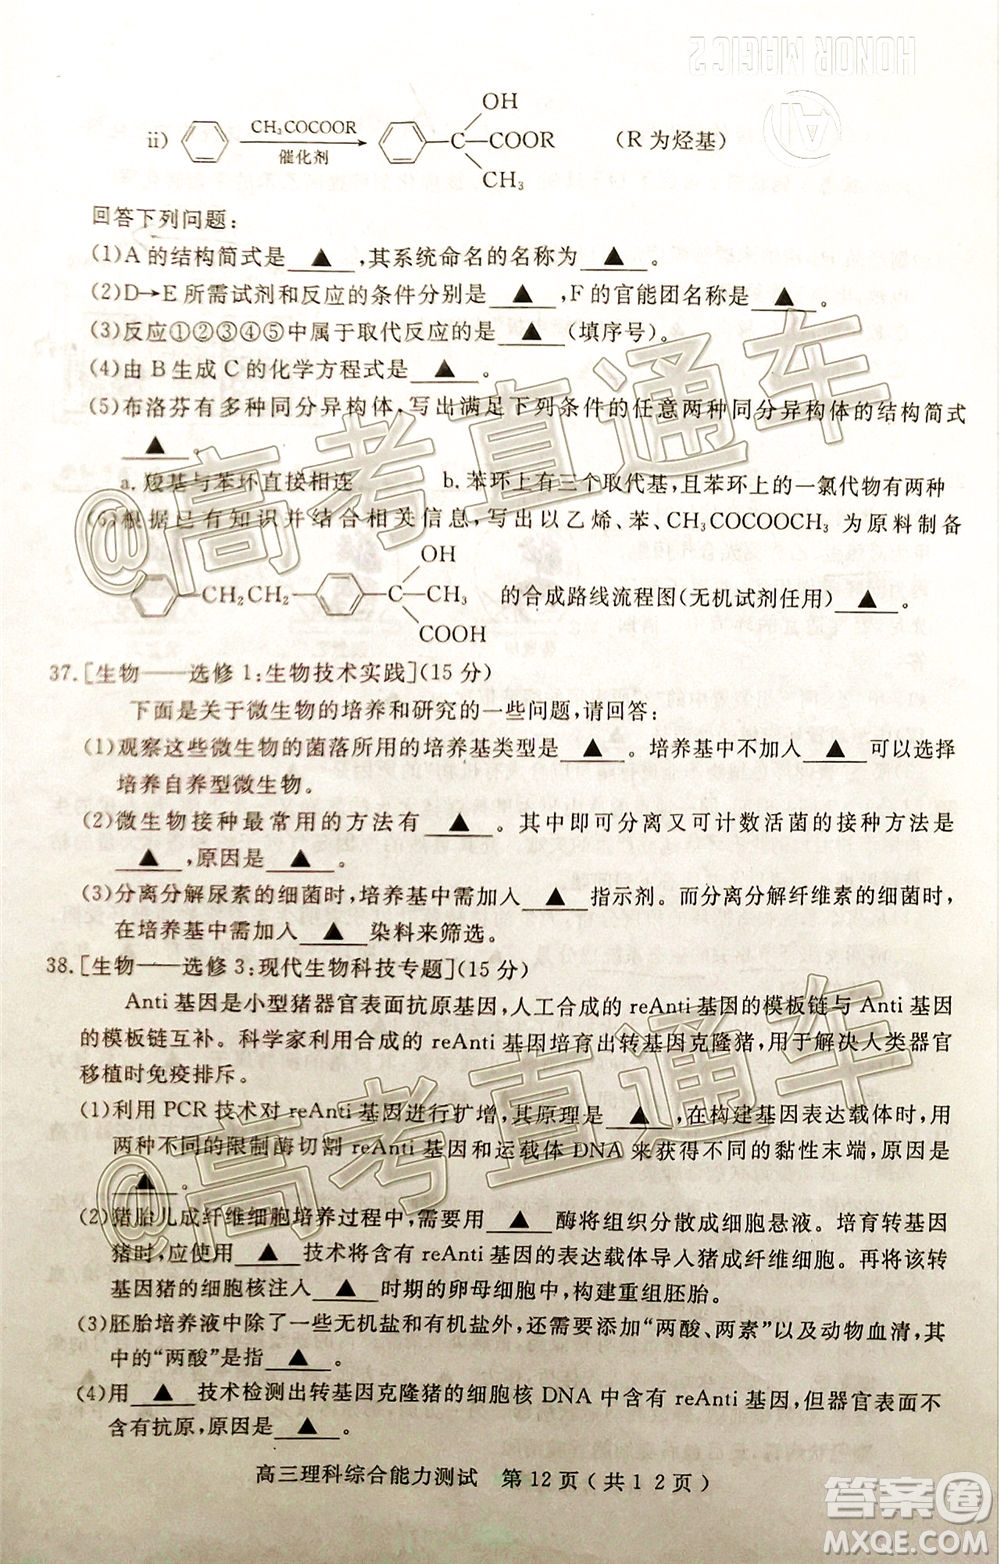 HONOR MAGIC 2
AI
OH
ii) CH₃COCOOR 催化剂 C—COOR (R 为烃基)
CH₃
回答下列问题:
(1)A 的结构简式是 ▲ ,其系统命名的名称为 ▲ 。
(2)D→E 所需试剂和反应的条件分别是 ▲ ,F 的官能团名称是 ▲ 。
(3)反应①②③④⑤中属于取代反应的是 ▲ (填序号)。
(4)由 B 生成 C 的化学方程式是 ▲ 。
(5)布洛芬有多种同分异构体,写出满足下列条件的任意两种同分异构体的结构简式
▲
a. 羧基与苯环直接相连 b. 苯环上有三个取代基,且苯环上的一氯代物有两种
(6)根据已有知识并结合相关信息,写出以乙烯、苯、CH₃COCOOCH₃ 为原料制备
OH
CH₂CH₂ C—CH₃ 的合成路线流程图(无机试剂任用) ▲ 。
COOH
37.[生物——选修 1:生物技术实践](15 分)
下面是关于微生物的培养和研究的一些问题,请回答:
(1)观察这些微生物的菌落所用的培养基类型是 ▲ 。培养基中不加入 ▲ 可以选择
培养自养型微生物。
(2)微生物接种最常用的方法有 ▲ 。其中即可分离又可计数活菌的接种方法是
▲ ,原因是 ▲ 。
(3)分离分解尿素的细菌时,培养基中需加入 ▲ 指示剂。而分离分解纤维素的细菌时,
在培养基中需加入 ▲ 染料来筛选。
38.[生物——选修 3:现代生物科技专题](15 分)
Anti 基因是小型猪器官表面抗原基因,人工合成的 reAnti 基因的模板链与 Anti 基因
的模板链互补。科学家利用合成的 reAnti 基因培育出转基因克隆猪,用于解决人类器官
移植时免疫排斥。
(1)利用 PCR 技术对 reAnti 基因进行扩增,其原理是 ▲ ,在构建基因表达载体时,用
两种不同的限制酶切割 reAnti 基因和运载体 DNA 来获得不同的黏性末端,原因是
▲ 。
(2)猪胎儿成纤维细胞培养过程中,需要用 ▲ 酶将组织分散成细胞悬液。培育转基因
猪时,应使用 ▲ 技术将含有 reAnti 基因的表达载体导入猪成纤维细胞。再将该转
基因猪的细胞核注入 ▲ 时期的卵母细胞中,构建重组胚胎。
(3)胚胎培养液中除了一些无机盐和有机盐外,还需要添加“两酸、两素”以及动物血清,其
中的“两酸”是指 ▲ 。
(4)用 ▲ 技术检测出转基因克隆猪的细胞核 DNA 中含有 reAnti 基因,但器官表面不
含有抗原,原因是 ▲ 。
高三理科综合能力测试 第12页(共12页)
@高考直通车
@高考直通车
答案圈
MXQE.COM